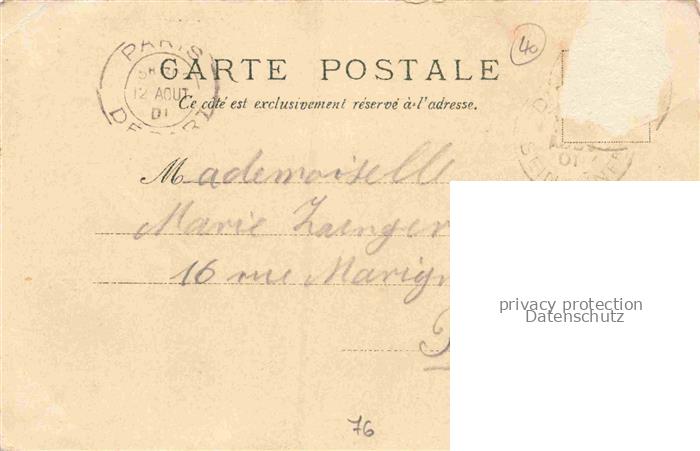 40
PARIS
12 AOUT
01
DEPART
CARTE POSTALE
Ce côté est exclusivement réservé à l'adresse.
01
Mademoiselle
Marie Zaenger
16 rue Marign
privacy protection
Datenschutz
76